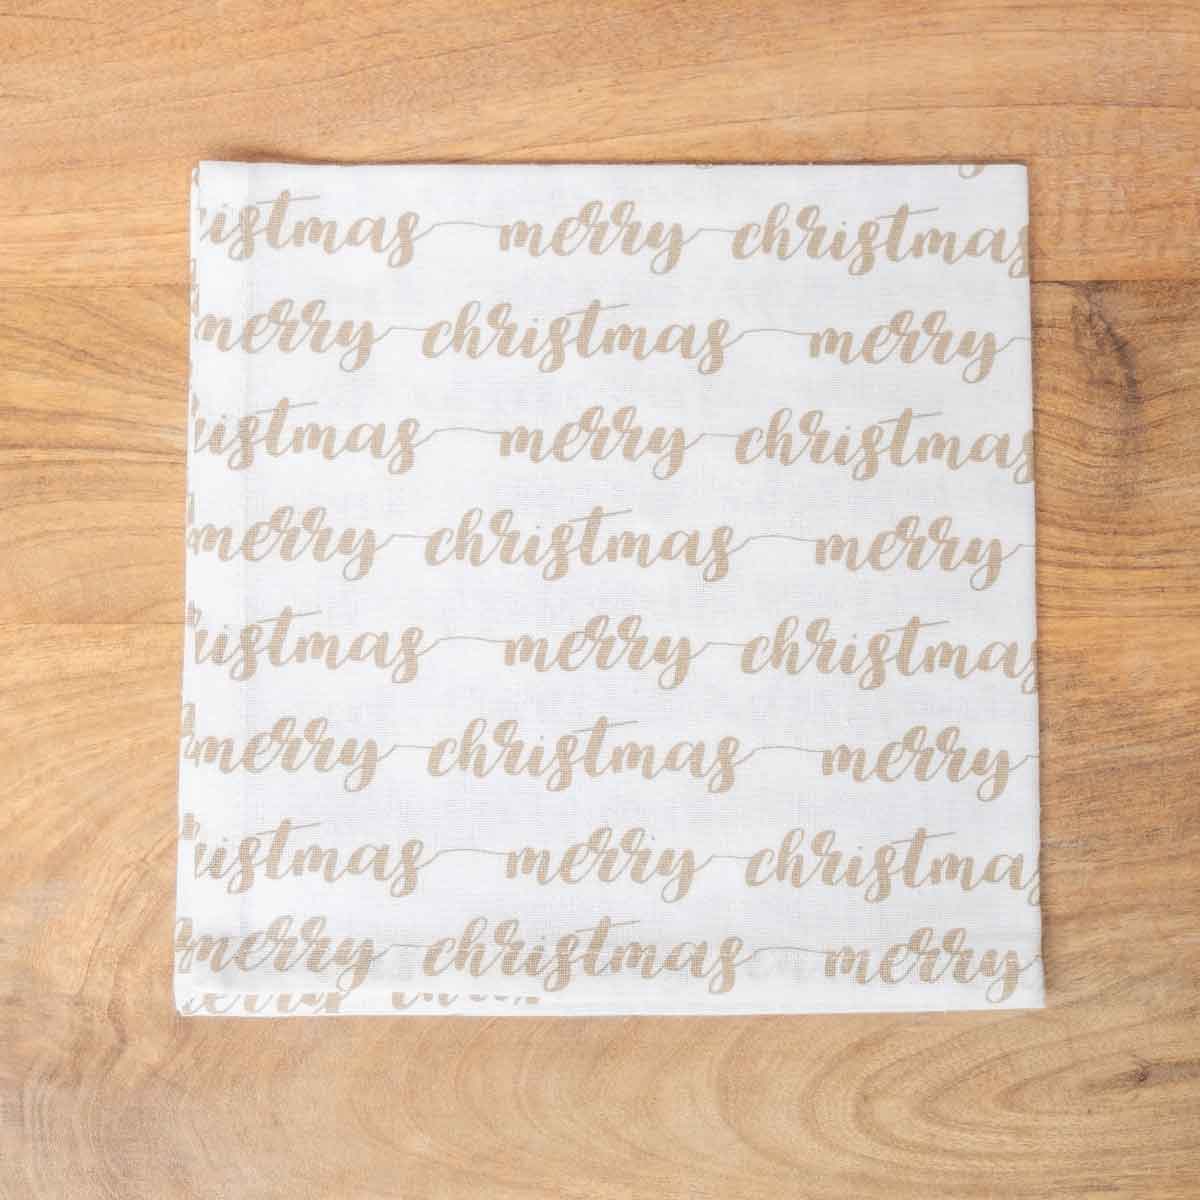 ristmas merry christmas
merry christmas merry
ristmas merry christmas
merry christmas merry
ristmas merry christmas
merry christmas merry
ristmas merry christmas
merry christmas merry